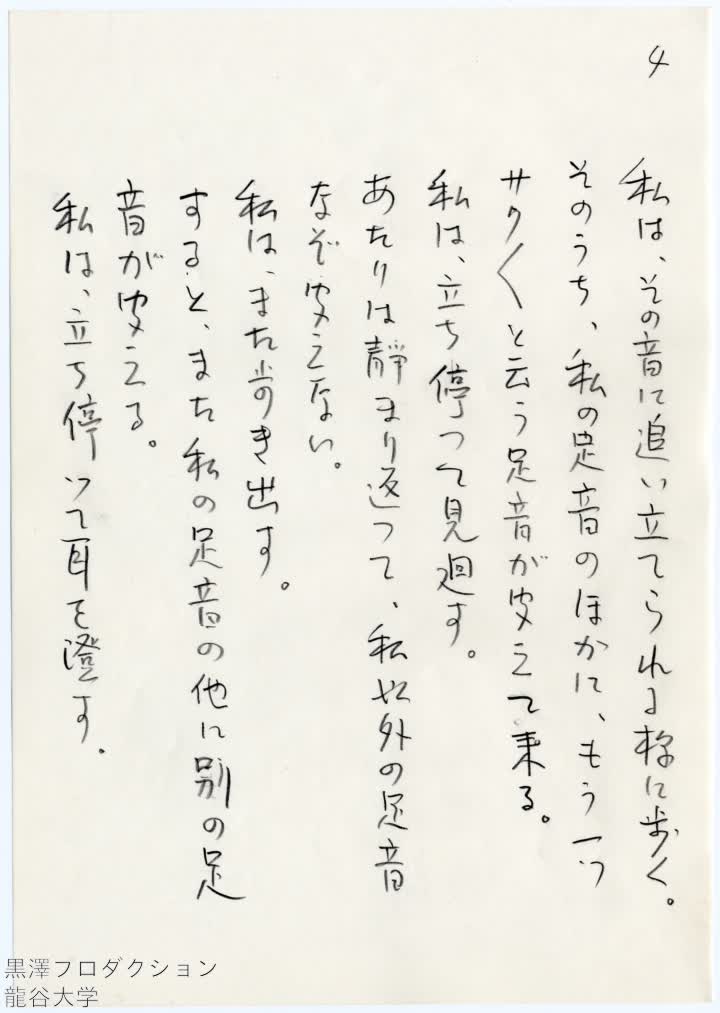 4
私は、その音に追い立てられる様に歩く。
そのうち、私の足音のほかに、もう一つ
サク〱と云う足音が聞えて来る。
私は、立ち停つて見廻す。
あたりは静まり返つて、私以外の足音
なぞ聞えない。
私は、また歩き出す。
すると、また私の足音の他に別の足
音が聞える。
私は、立ち停つて耳を澄す。
黒澤プロダクション
龍谷大学